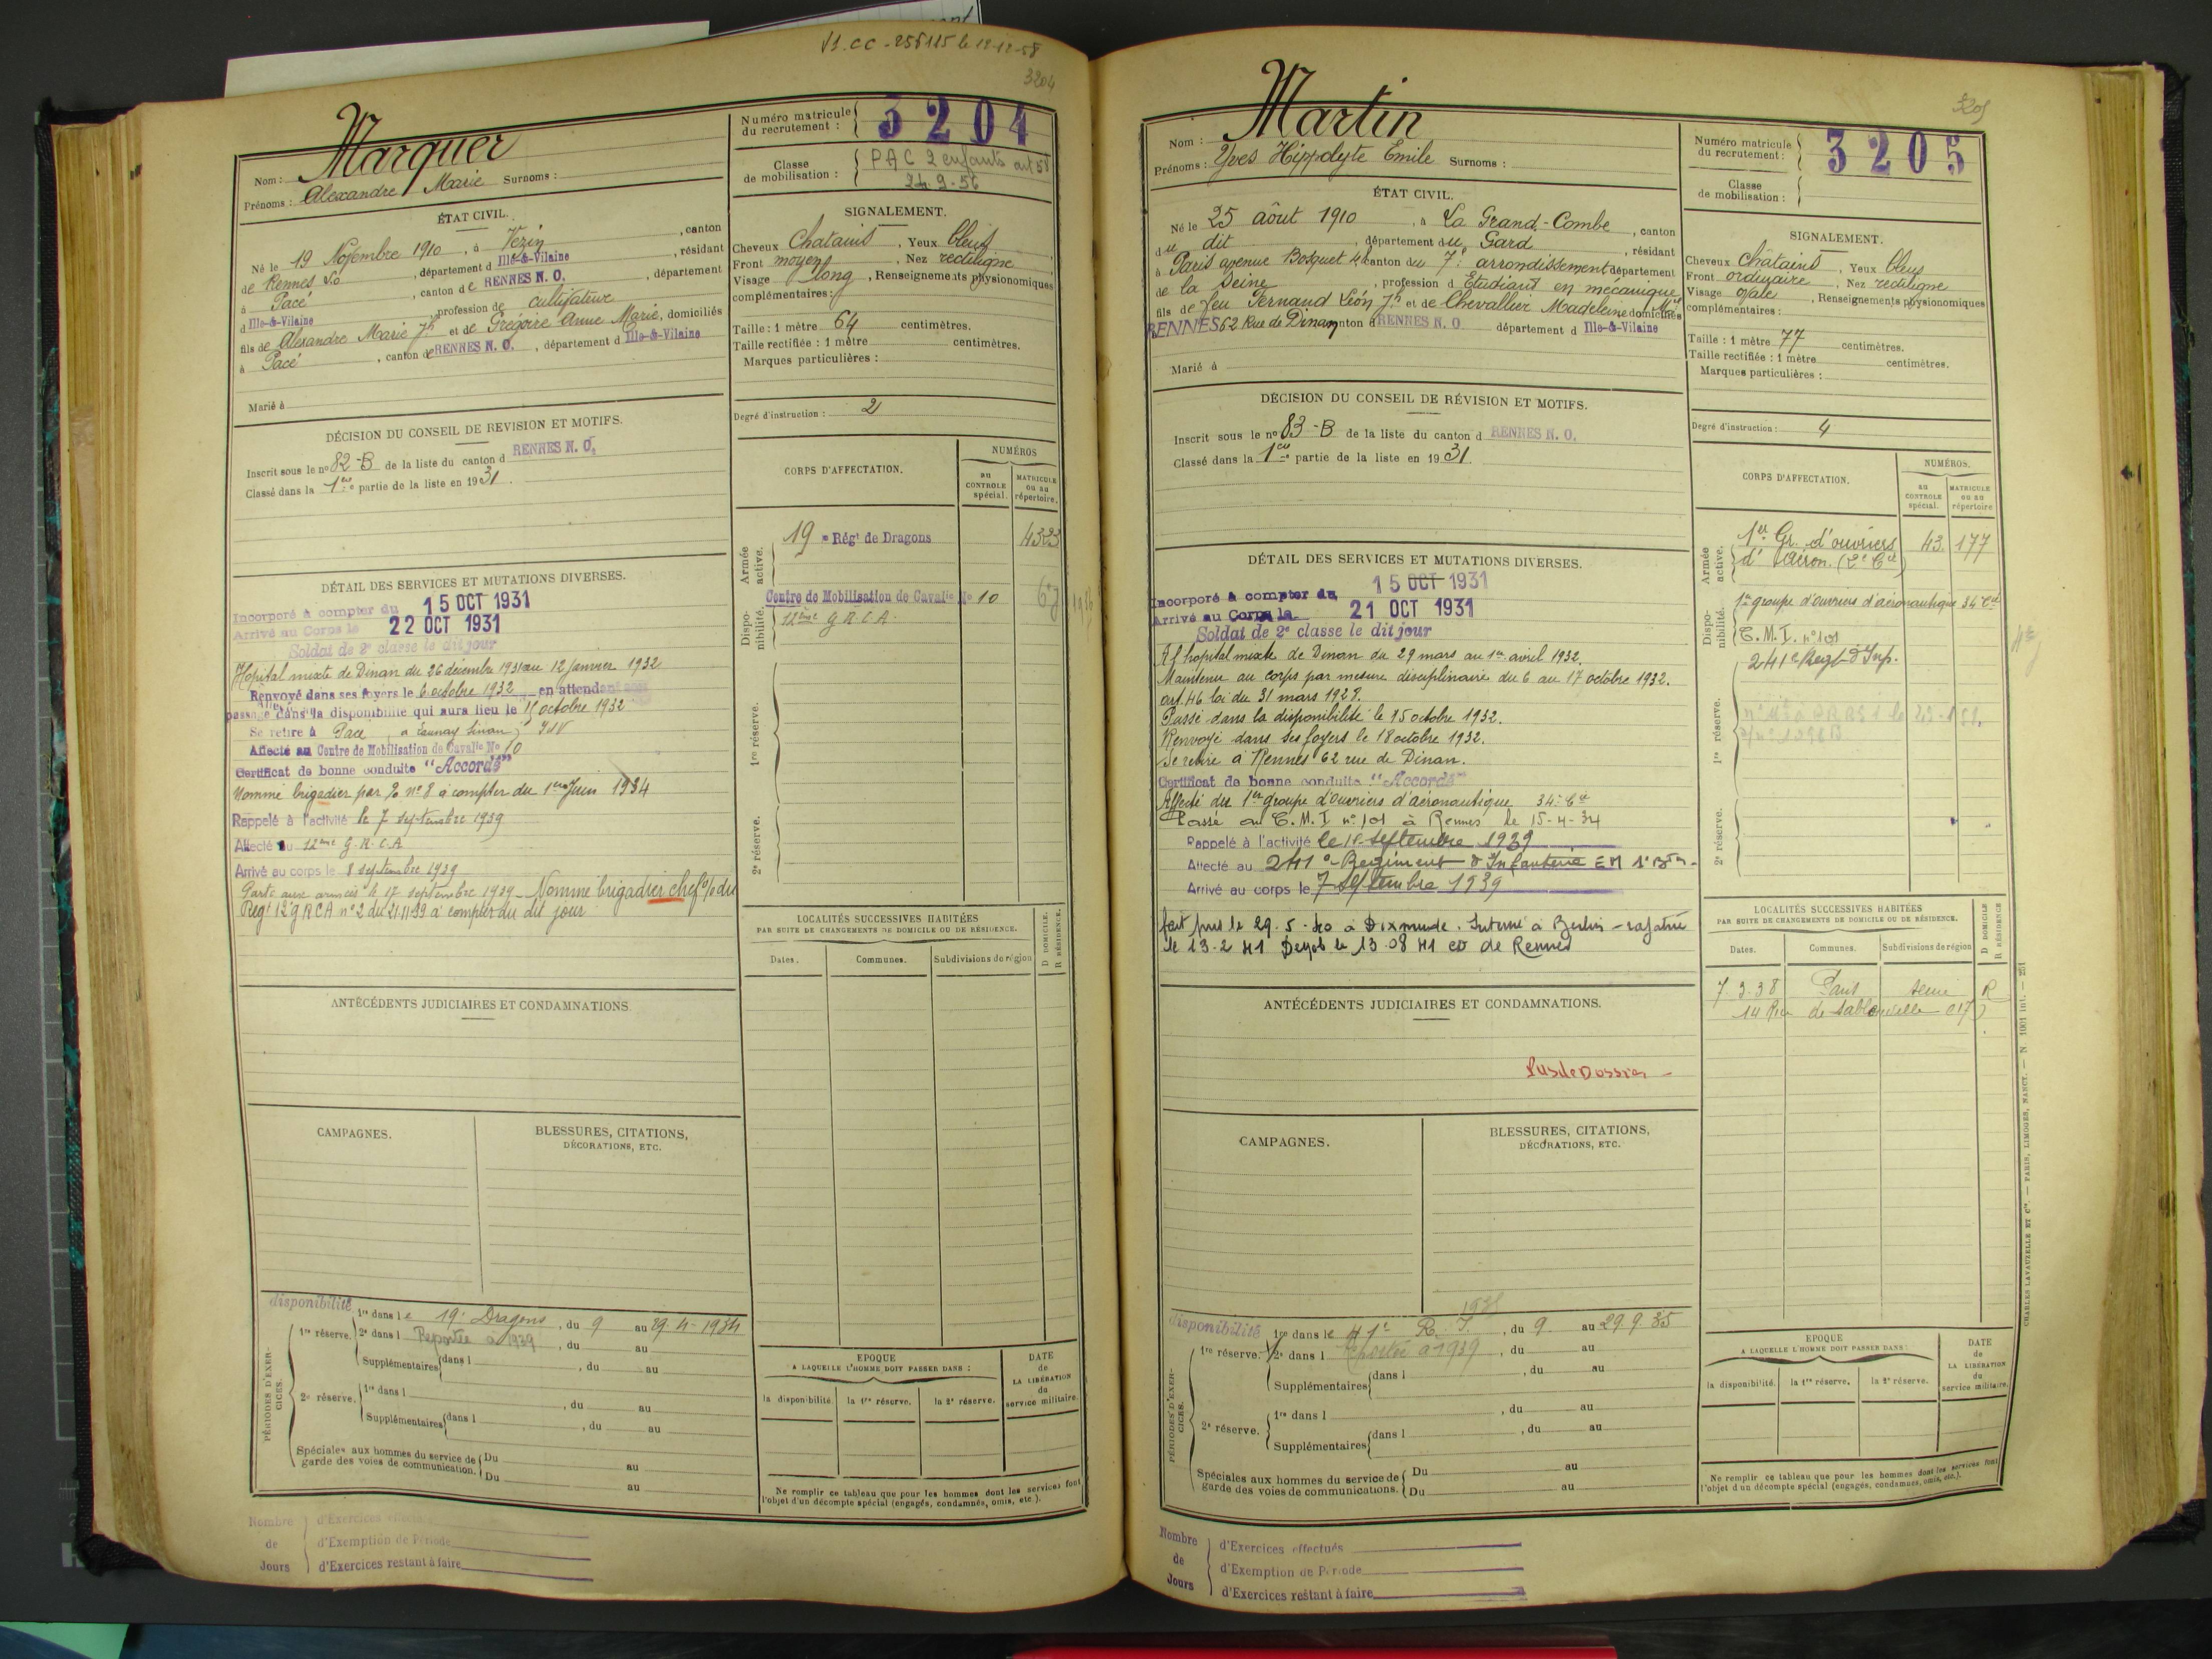 V1.CC-256115 le 12-12-58
3204
Nom : Marquer
Prénoms : Alexandre Marie Surnoms :
Numéro matricule du recrutement : 3204
Classe de mobilisation : PAC 2 enfants art 58
24.9.56
ÉTAT CIVIL.
Né le 19 Novembre 1910, à Vezin, canton
de Rennes S.o, département d Ille-&-Vilaine, résidant
à Pacé, canton de RENNES N. O., département
d Ille-&-Vilaine, profession de cultivateur
fils de Alexandre Marie Jh et de Grégoire Anne Marie, domiciliés
à Pacé, canton de RENNES N. O., département d Ille-&-Vilaine
Marié à
SIGNALEMENT.
Cheveux Chatains, Yeux bleus
Front moyen, Nez rectiligne
Visage long, Renseignements physionomiques
complémentaires :
Taille : 1 mètre 64 centimètres.
Taille rectifiée : 1 mètre centimètres.
Marques particulières :
Degré d'instruction : 2
DÉCISION DU CONSEIL DE REVISION ET MOTIFS.
Inscrit sous le n° 82-B de la liste du canton d RENNES N. O.
Classé dans la 1ère partie de la liste en 1931.
CORPS D'AFFECTATION.
NUMÉROS
au CONTROLE spécial.
MATRICULE ou au répertoire.
Armée active.
19e Régt de Dragons 4323
Disponibilité.
Centre de Mobilisation de Cavalie No 10
12ème G.R.C.A.
1re réserve.
2e réserve.
DÉTAIL DES SERVICES ET MUTATIONS DIVERSES.
Incorporé à compter du 15 OCT 1931
Arrivé au Corps le 22 OCT 1931
Soldat de 2e classe le dit jour
Hopital mixte de Dinan du 26 décembre 1931 au 12 Janvier 1932
Renvoyé dans ses foyers le 6 octobre 1932 en attendant son
passage dans la disponibilité qui aura lieu le 15 octobre 1932
Se retire à Pacé, a Launay Sinan, I&V
Affecté au Centre de Mobilisation de Cavalie No 10
Certificat de bonne conduite "Accordé"
Nommé brigadier par % n° 8 à compter du 1er Juin 1934
Rappelé à l'activité le 7 septembre 1939
Affecté au 12ème G.R.C.A
Arrivé au corps le 8 septembre 1939
Parti aux armées le 17 septembre 1939 _ Nommé brigadier chef o/o du
Regt 12e G R C A n° 2 du 21.11.39 à compter du dit jour
LOCALITÉS SUCCESSIVES HABITÉES
PAR SUITE DE CHANGEMENTS DE DOMICILE OU DE RÉSIDENCE.
D DOMICILE. R RÉSIDENCE.
Dates. Communes. Subdivisions de région
ANTÉCÉDENTS JUDICIAIRES ET CONDAMNATIONS.
CAMPAGNES.
BLESSURES, CITATIONS,
DÉCORATIONS, ETC.
disponibilité
PÉRIODES D'EXERCICES.
1re réserve. 1re dans le 19e Dragons, du 9 au 29-4-1934
2e dans l Reportée à 1939, du au
Supplémentaires dans l, du au
2e réserve. 1re dans l, du au
Supplémentaires dans l, du au
Spéciales aux hommes du service de garde des voies de communication. Du au
Du au
EPOQUE
A LAQUELLE L'HOMME DOIT PASSER DANS :
la disponibilité. la 1re réserve. la 2e réserve.
DATE de LA LIBÉRATION du service militaire.
Ne remplir ce tableau que pour les hommes dont les services font
l'objet d'un décompte spécial (engagés, condamnés, omis, etc.).
Nombre de Jours
d'Exercices effectués
d'Exemption de Période
d'Exercices restant à faire
3205
Nom : Martin
Prénoms : Yves Hippolyte Emile Surnoms :
Numéro matricule du recrutement : 3205
Classe de mobilisation :
ÉTAT CIVIL.
Né le 25 aôut 1910, à La Grand-Combe, canton
du dit, département du Gard, résidant
à Paris avenue Bosquet 4, canton du 7e arrondissement département
de la Seine, profession d Etudiant en mécanique
fils de feu Fernand Léon Jh et de Chevallier Madeleine Mie domiciliés
RENNES 62 Rue de Dinan canton d RENNES N. O département d Ille-&-Vilaine
Marié à
SIGNALEMENT.
Cheveux Chatains, Yeux bleus
Front ordinaire, Nez rectiligne
Visage ovale, Renseignements physionomiques
complémentaires :
Taille : 1 mètre 77 centimètres.
Taille rectifiée : 1 mètre centimètres.
Marques particulières :
Degré d'instruction : 4
DÉCISION DU CONSEIL DE RÉVISION ET MOTIFS.
Inscrit sous le n° 83-B de la liste du canton d RENNES N. O.
Classé dans la 1ère partie de la liste en 1931.
CORPS D'AFFECTATION.
NUMÉROS.
au CONTROLE spécial.
MATRICULE ou au répertoire
Armée active.
1er Gr. d'ouvriers 43. 177
d'Aéron. (2e Cie)
Disponibilité.
1er groupe d'ouvriers d'aéronautique 34e Cie
C.M.I. n° 101
1re réserve.
241e Regt d'Inf.
2e réserve.
DÉTAIL DES SERVICES ET MUTATIONS DIVERSES.
Incorporé à compter du 15 OCT 1931
Arrivé au Corps le 21 OCT 1931
Soldat de 2e classe le dit jour
hopital mixte de Dinan du 29 mars au 1er avril 1932.
Maintenu au corps par mesure disciplinaire du 6 au 17 octobre 1932.
art. 46 loi du 31 mars 1928.
Passé dans la disponibilité le 15 octobre 1932.
Renvoyé dans ses foyers le 18 octobre 1932.
Se retire à Rennes 62 rue de Dinan.
Certificat de bonne conduite "Accordé"
Affecté du 1er groupe d'ouvriers d'aéronautique 34e Cie
Passé au C.M.I n° 101 à Rennes le 15-4-34
Rappelé à l'activité le 1er Septembre 1939
Affecté au 241e Regiment d'Infanterie EM 1er Bton
Arrivé au corps le 7 Septembre 1939
fait pris le 29.5.40 à Dixmude. Interné à Berlin - rapatrié
le 13-2 41 Demob le 13 08 41 co de Rennes
LOCALITÉS SUCCESSIVES HABITÉES
PAR SUITE DE CHANGEMENTS DE DOMICILE OU DE RÉSIDENCE.
D DOMICILE R RÉSIDENCE
Dates. Communes. Subdivisions de région
7.3.38 Paris Seine R
14 Rue de Sablonville (17)
ANTÉCÉDENTS JUDICIAIRES ET CONDAMNATIONS.
Pas de Dossier -
CAMPAGNES.
BLESSURES, CITATIONS,
DÉCORATIONS, ETC.
disponibilité
PÉRIODES D'EXERCICES.
1935
1re réserve. 1re dans le 41e R.I., du 9 au 29.9.35
2e dans l reportée à 1939, du au
Supplémentaires dans l, du au
2e réserve. 1re dans l, du au
Supplémentaires dans l, du au
Spéciales aux hommes du service de garde des voies de communications. Du au
Du au
EPOQUE
A LAQUELLE L'HOMME DOIT PASSER DANS :
la disponibilité. la 1re réserve. la 2e réserve.
DATE de LA LIBÉRATION du service militaire.
Ne remplir ce tableau que pour les hommes dont les services font
l'objet d'un décompte spécial (engagés, condamnés, omis, etc.).
CHARLES LAVAUZELLE ET Cie. — PARIS, LIMOGES, NANCY. — N 1001 int. — 251
Nombre de Jours
d'Exercices effectués
d'Exemption de Période
d'Exercices restant à faire